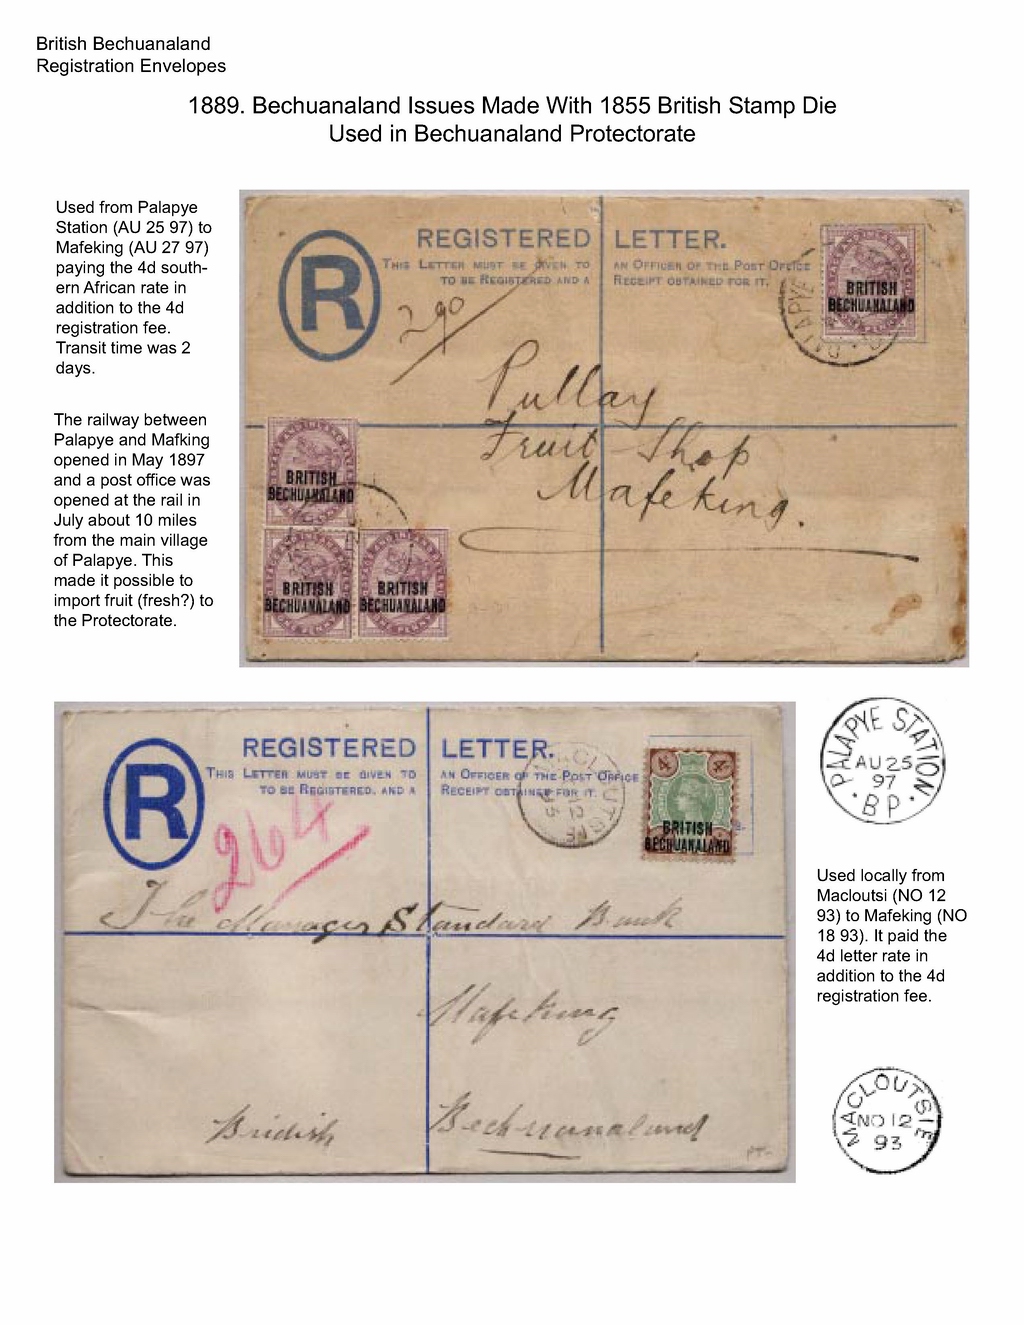 British Bechuanaland
Registration Envelopes
1889. Bechuanaland Issues Made With 1855 British Stamp Die
Used in Bechuanaland Protectorate
Used from Palapye
Station (AU 25 97) to
Mafeking (AU 27 97)
paying the 4d south-
ern African rate in
addition to the 4d
registration fee.
Transit time was 2
days.
The railway between
Palapye and Mafking
opened in May 1897
and a post office was
opened at the rail in
July about 10 miles
from the main village
of Palapye. This
made it possible to
import fruit (fresh?) to
the Protectorate.
R
REGISTERED LETTER.
THIS LETTER MUST BE GIVEN TO AN OFFICER OF THE POST OFFICE
TO BE REGISTERED AND A RECEIPT OBTAINED FOR IT.
290
BRITISH
BECHUANALAND
PALAPYE
Pullay
Fruit Shop
Mafeking.
BRITISH
BECHUANALAND
BRITISH
BECHUANALAND
ONE PENNY
BRITISH
BECHUANALAND
ONE PENNY
R
REGISTERED LETTER.
THIS LETTER MUST BE GIVEN TO AN OFFICER OF THE POST OFFICE
TO BE REGISTERED, AND A RECEIPT OBTAINED FOR IT.
264
MACLOUTSIE
4d 4d
BRITISH
BECHUANALAND
The Manager Standard Bank
Mafeking
British Bechuanaland
PALAPYE STATION
AU 25
97
B P
Used locally from
Macloutsi (NO 12
93) to Mafeking (NO
18 93). It paid the
4d letter rate in
addition to the 4d
registration fee.
MACLOUTSIE
NO 12
93